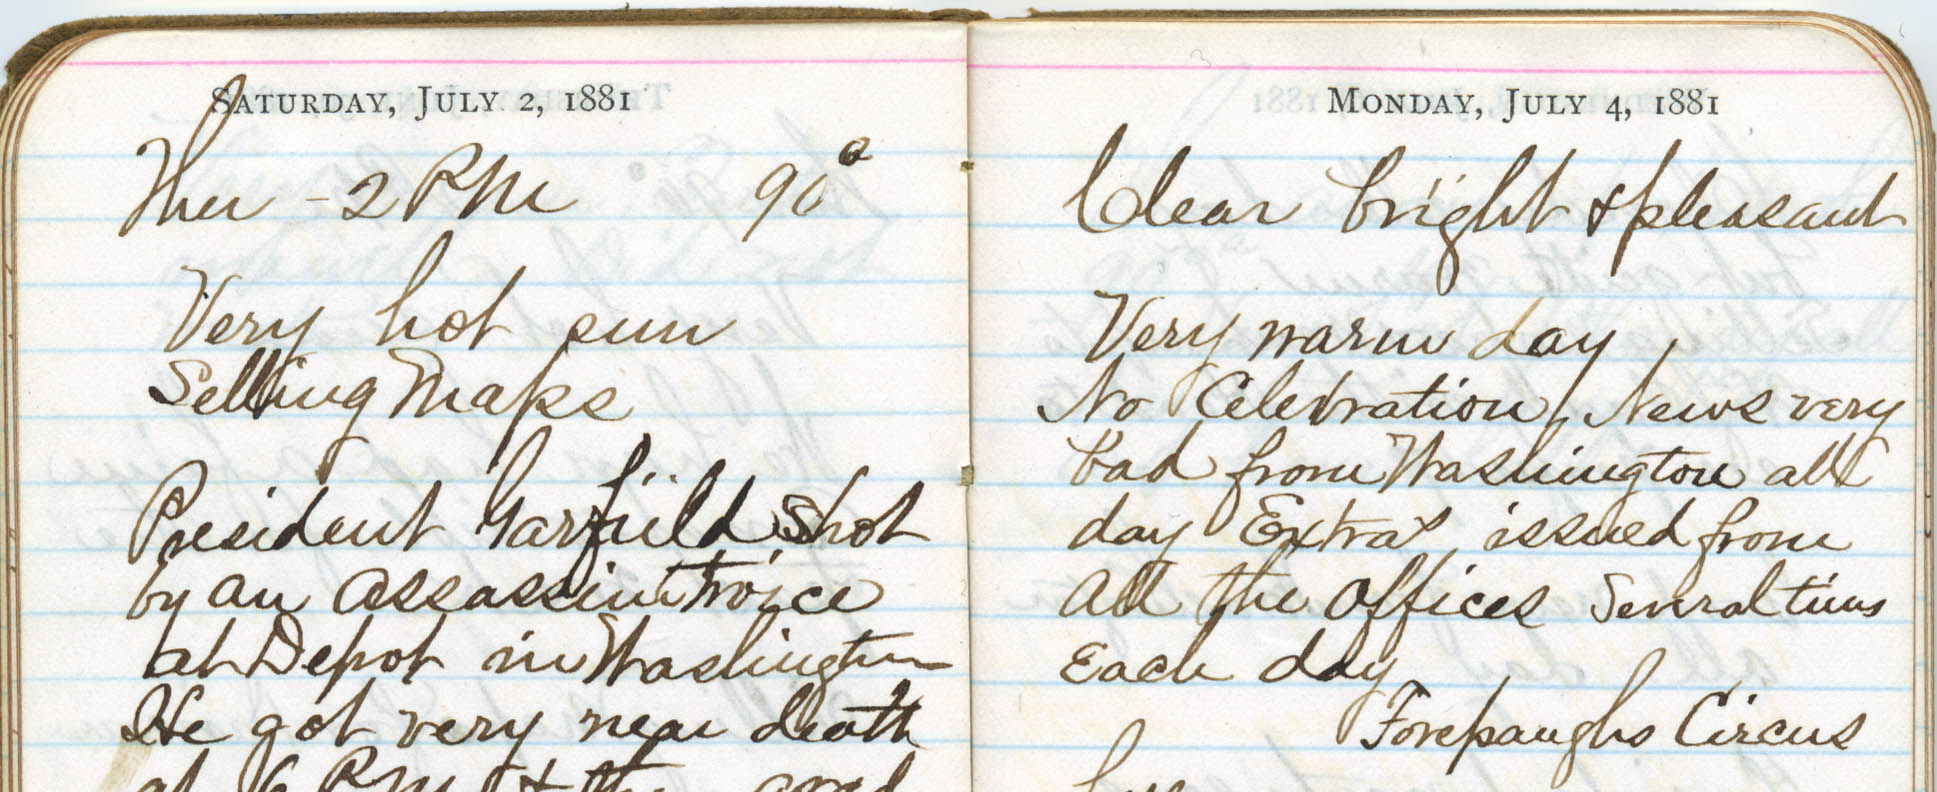 SATURDAY, JULY 2, 1881
Ther - 2 PM 90°
Very hot sun
Selling Maps
President Garfield Shot
by an assassin twice
at Depot in Washington
He got very near death
at 6 PM & the
MONDAY, JULY 4, 1881
Clear bright & pleasant
Very warm day
No Celebration, News very
bad from Washington all
day Extras issued from
all the Offices Several times
Each day
Forepaughs Circus